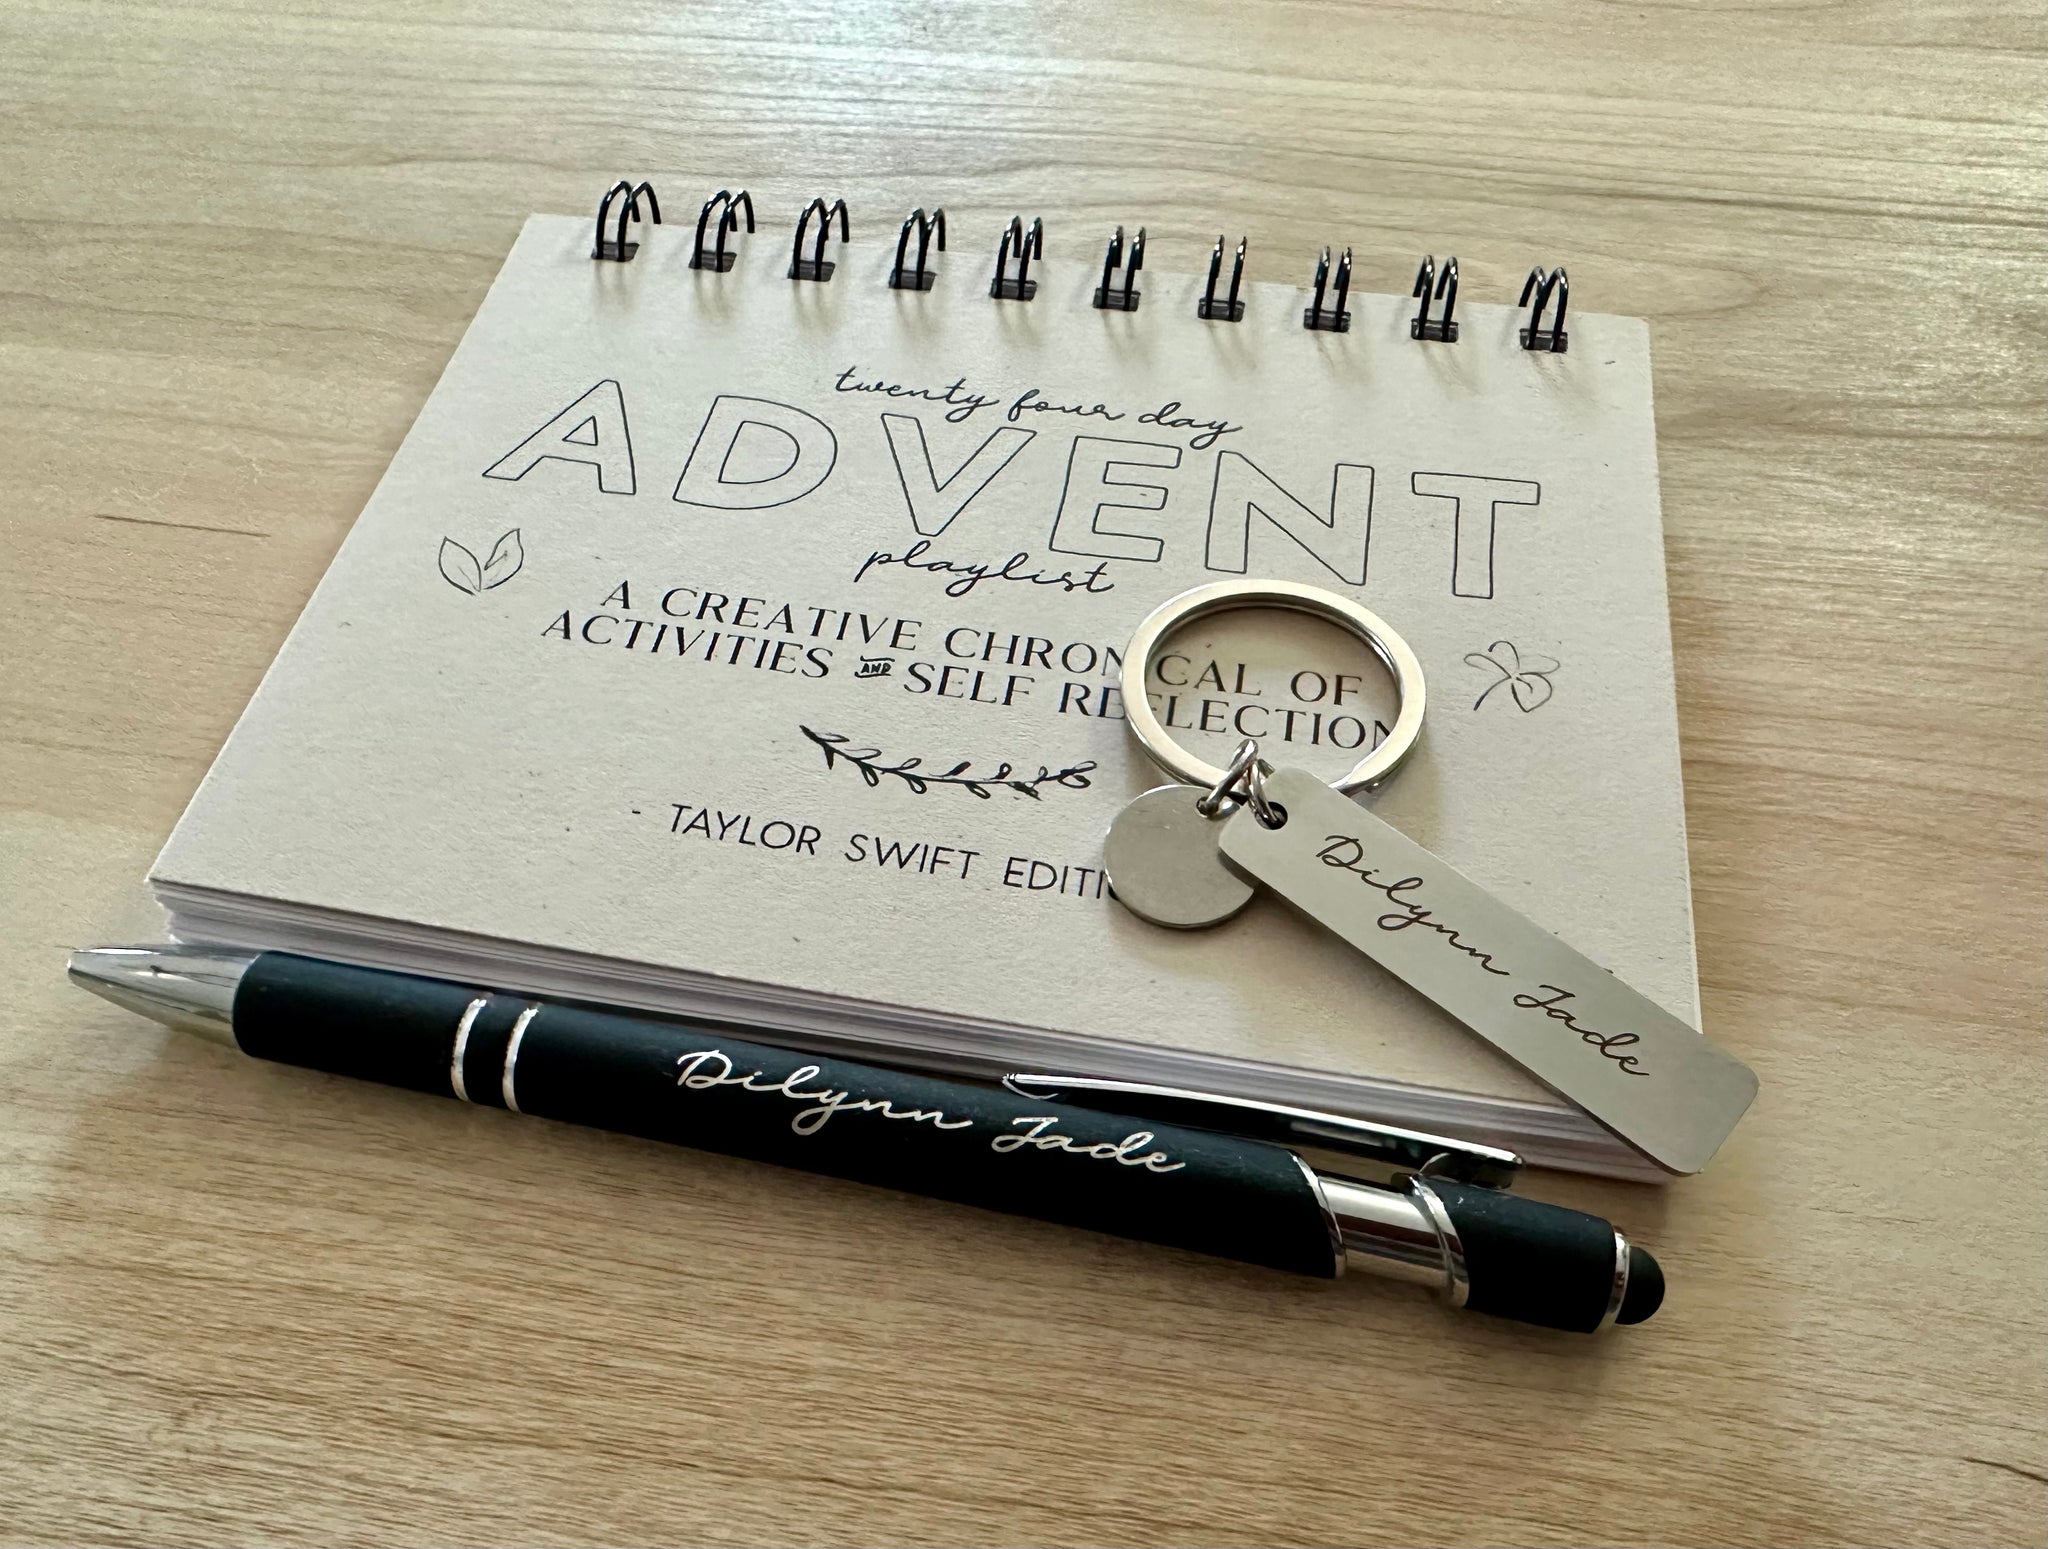 twenty four day
ADVENT
playlist
A CREATIVE CHRONICAL OF
ACTIVITIES AND SELF REFLECTION
- TAYLOR SWIFT EDITI
Dilynn Jade
Dilynn Jade